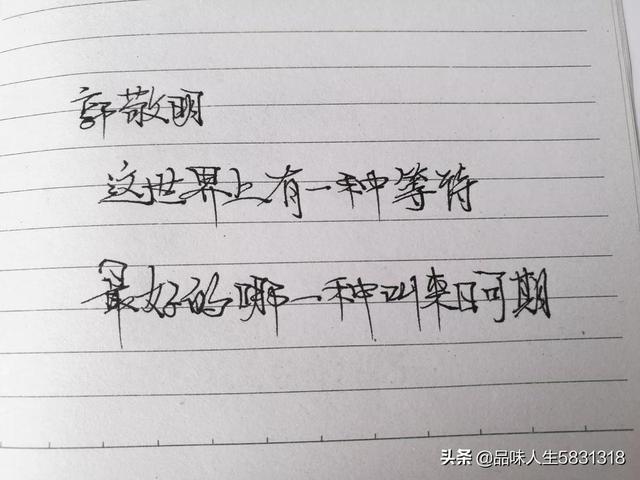 郭敬明
这世界上有一种等待
最好的哪一种叫来日可期
头条 @品味人生5831318